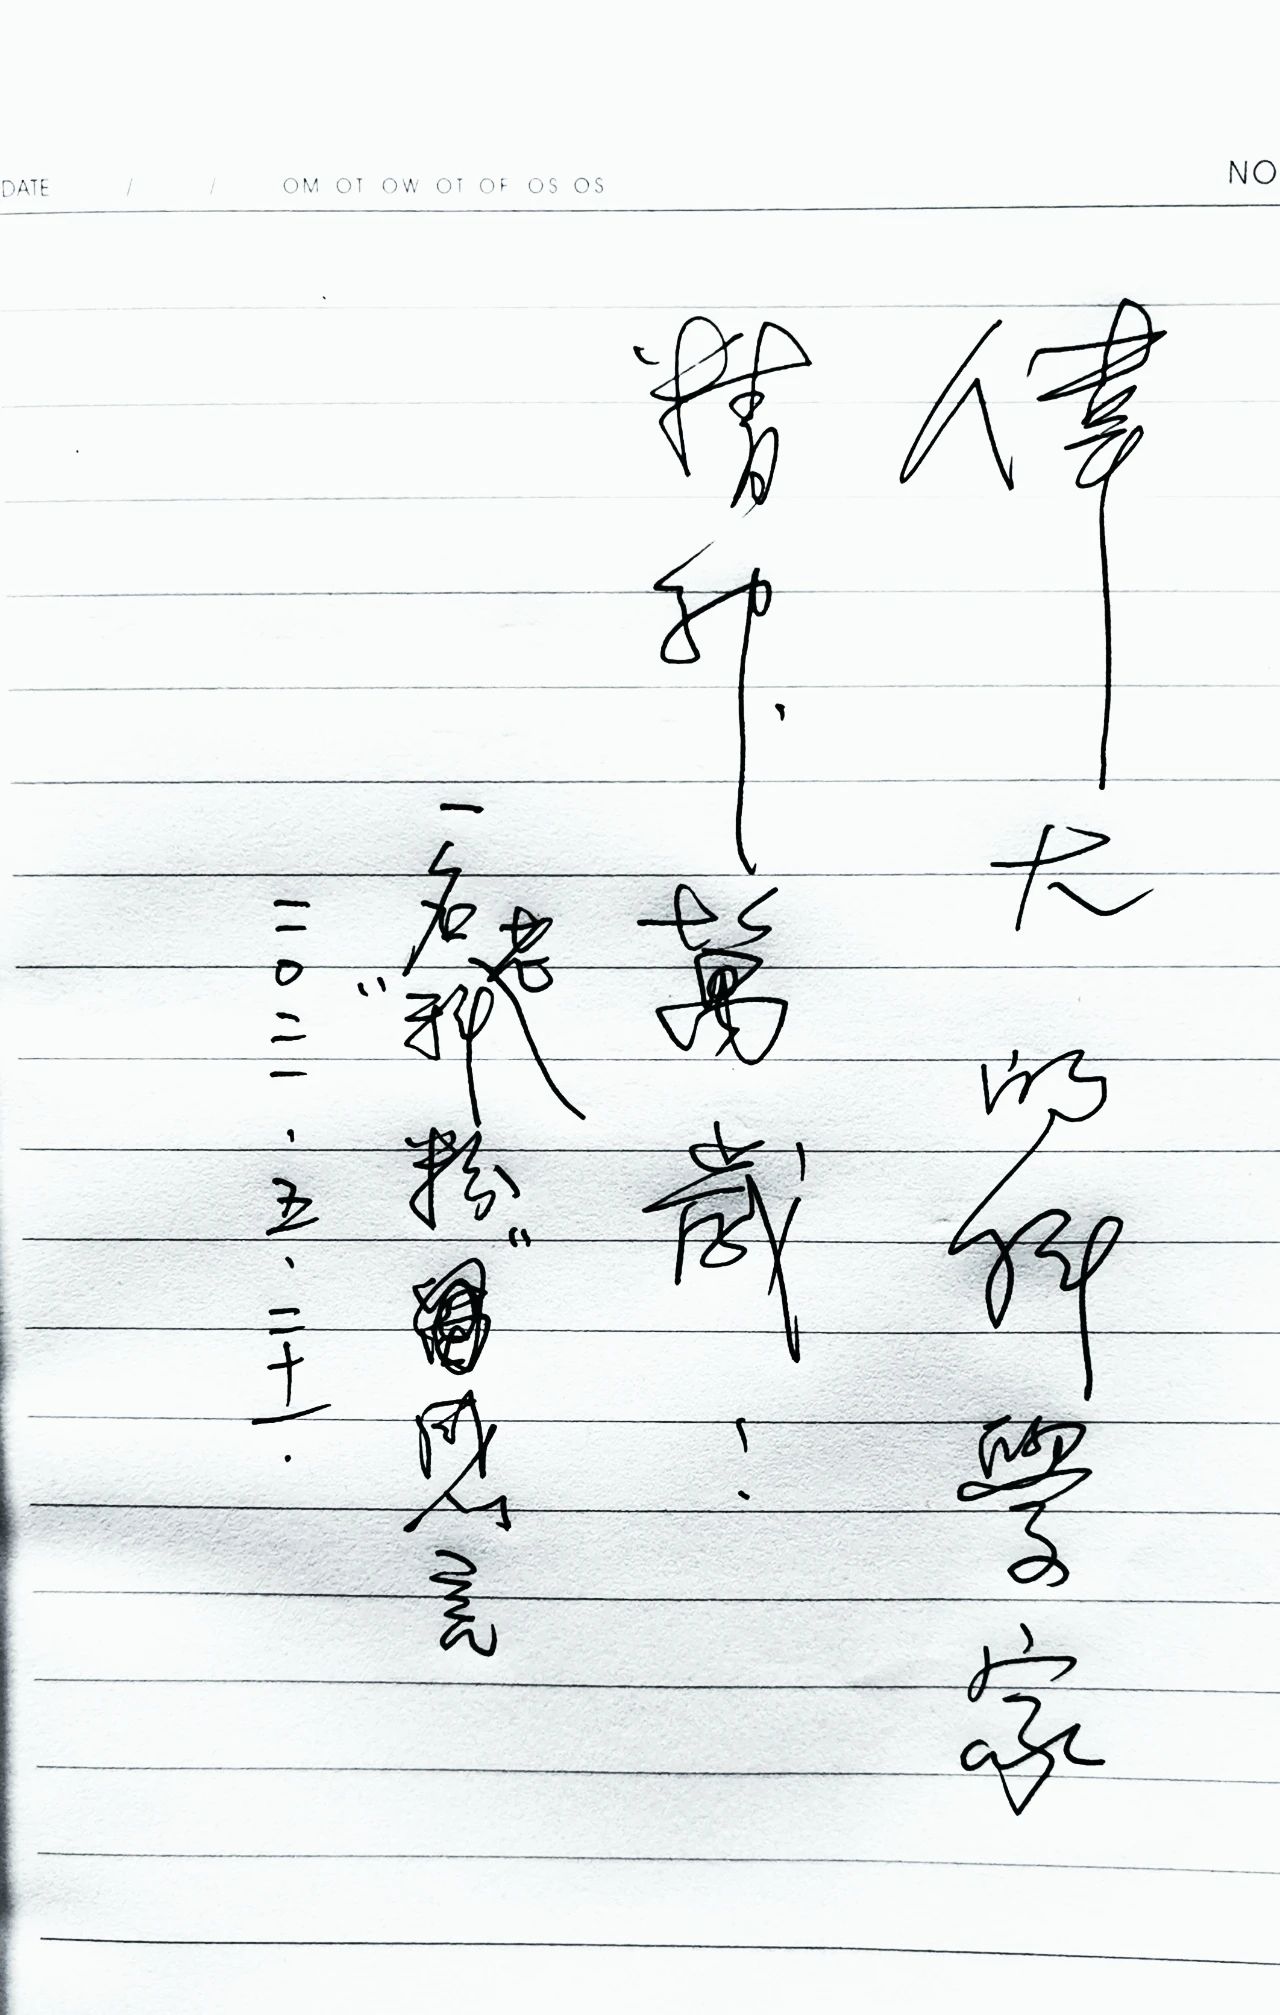 DATE / / OM OT OW OT OF OS OS NO
偉大的科學家
精神萬歲！
一名老“科粉”
二〇二二.五.二十一.